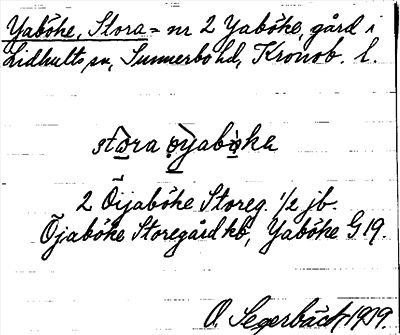 Yaböke, Stora = nr 2 Yaböke, gård i
Lidhults sn, Sunnerbo hd, Kronob. l.
stora öyaböka
2 Öijaböke Storeg. 1/2 jb.
Öjaböke Storegård kb, Yaböke G 19.
O. Segerbäck 1929.